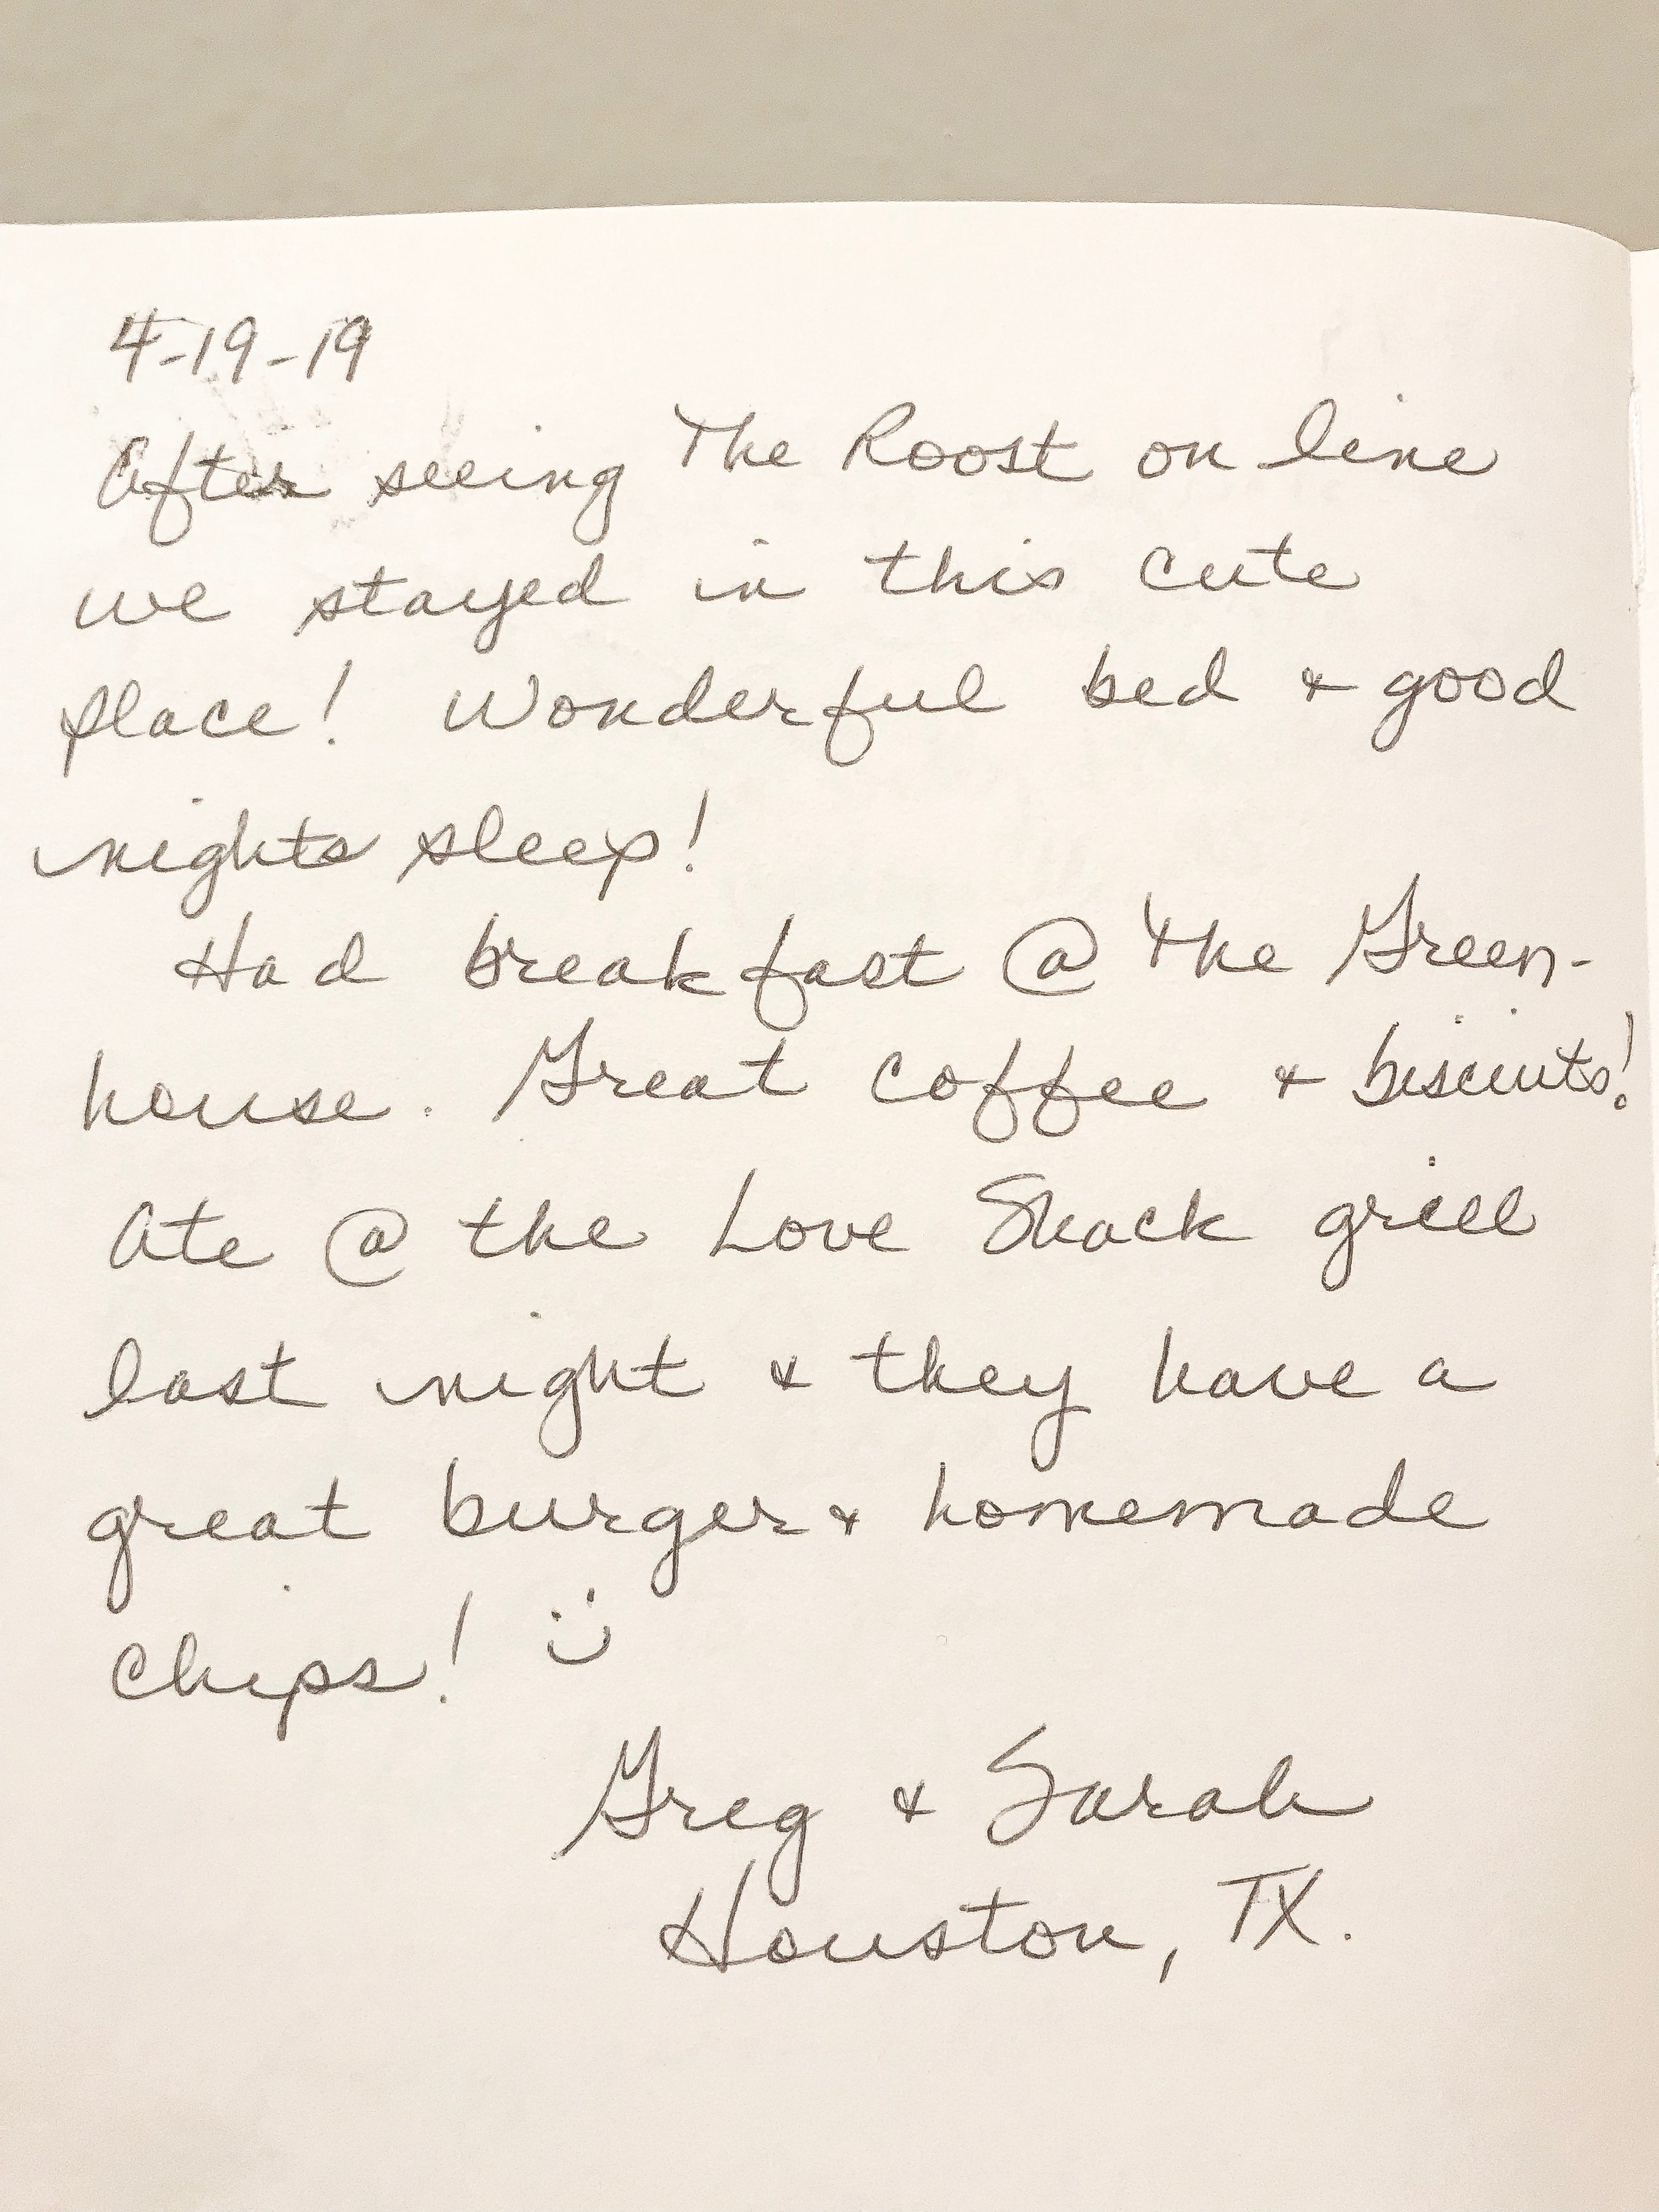 4-19-19
After seeing The Roost on line
we stayed in this cute
place! Wonderful bed & good
nights sleep!
Had breakfast @ the Green-
house. Great coffee & biscuits!
Ate @ the Love Shack grill
last night & they have a
great burger & homemade
chips! :)
Greg & Sarah
Houston, TX.